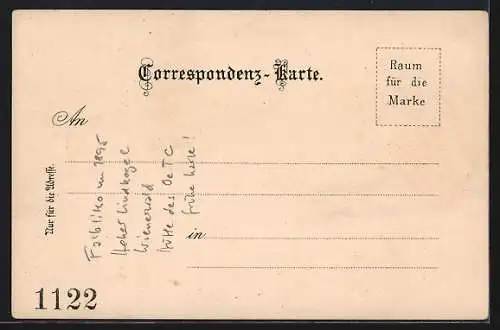 Correspondenz-Karte.
Raum
für die
Marke
An
Nur für die Adresse.
Farblitho um 1895
Hoher Lindkogel
Wienerwald
Hütte des Oe T C
frühe Karte!
in
1122